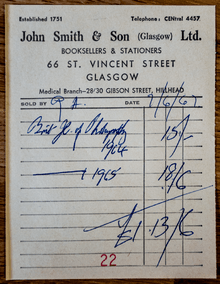 Established 1751 Telephone: CENtral 4457
John Smith & Son (Glasgow) Ltd.
BOOKSELLERS & STATIONERS
66 ST. VINCENT STREET
GLASGOW
Medical Branch—28/30 GIBSON STREET, HILLHEAD
SOLD BY DATE 7/6/67
Brit. Jl. of Philosophy 15/-
1964
1965 18/6
/6
£1.13/6
22